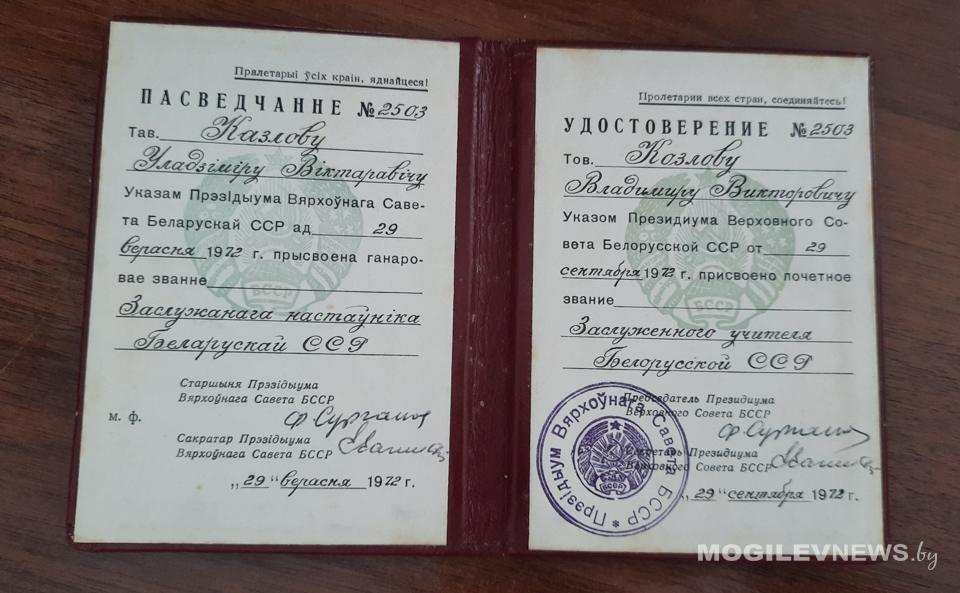 Пралетарыі ўсіх краін, яднайцеся!
ПАСВЕДЧАННЕ №2503
Тав. Казлову
Уладзіміру Віктаравічу
Указам Прэзідыума Вярхоўнага Саве-
та Беларускай ССР ад 29
верасня 1972 г. прысвоена ганаро-
вае званне
Заслужанага настаўніка
Беларускай ССР
Старшыня Прэзідыума
Вярхоўнага Савета БССР
м. ф.
Ф. Сурганов
Сакратар Прэзідыума
Вярхоўнага Савета БССР
„29“ верасня 1972 г.
БССР
Пролетарии всех стран, соединяйтесь!
УДОСТОВЕРЕНИЕ №2503
Тов. Козлову
Владимиру Викторовичу
Указом Президиума Верховного Со-
вета Белорусской ССР от 29
сентября 1972 г. присвоено почетное
звание
Заслуженного учителя
Белорусской ССР
Председатель Президиума
Верховного Совета БССР
Ф. Сурганов
Секретарь Президиума
Верховного Совета БССР
„29“ сентября 1972 г.
БССР
Прэзідыум Вярхоўнага Савета БССР *
БССР
MOGILEVNEWS.by